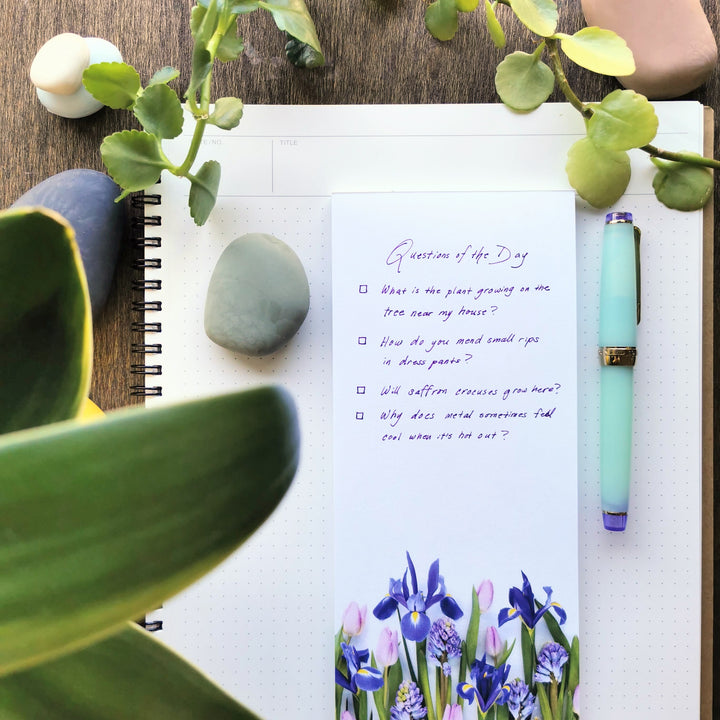 E/NO.
TITLE
Questions of the Day
☐ What is the plant growing on the
tree near my house?
☐ How do you mend small rips
in dress pants?
☐ Will saffron crocuses grow here?
☐ Why does metal sometimes feel
cool when it's hot out?